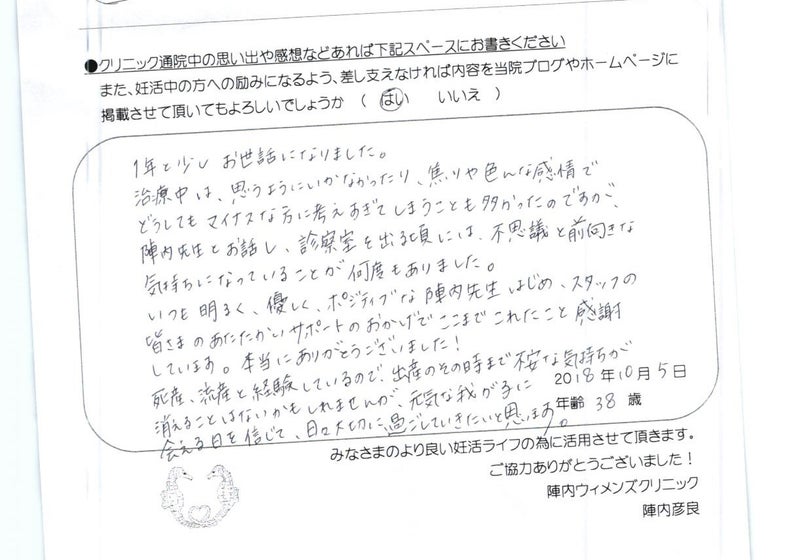 ●クリニック通院中の思い出や感想などあれば下記スペースにお書きください
また、妊活中の方への励みになるよう、差し支えなければ内容を当院ブログやホームページに
掲載させて頂いてもよろしいでしょうか ( はい いいえ )
1年と少し お世話になりました。
治療中は、思うようにいかなかったり、焦りや色んな感情で
どうしてもマイナスな方に考えすぎてしまうことも多かったのですが、
陣内先生とお話し、診察室を出る頃には、不思議と前向きな
気持ちになっていることが何度もありました。
いつも明るく、優しく、ポジティブな陣内先生はじめ、スタッフの
皆さまのあたたかいサポートのおかげでここまでこれたこと感謝
しています。本当にありがとうございました!
死産、流産と経験しているので、出産のその時まで不安な気持ちが
消えることはないかもしれませんが、元気な我が子に
会える日を信じて、日々大切に過ごしていきたいと思います。
2018年10月5日
年齢 38 歳
みなさまのより良い妊活ライフの為に活用させて頂きます。
ご協力ありがとうございました!
陣内ウィメンズクリニック
陣内彦良